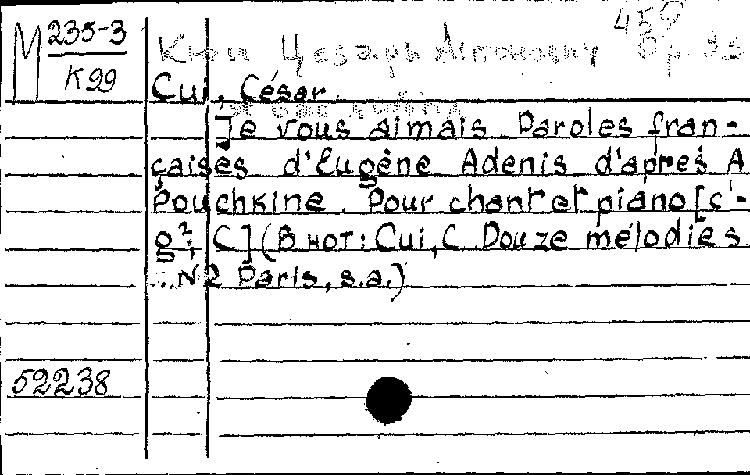 450
М 235-3
К99
Кюи Цезарь Антонович Op.
Cui, César
Je vous aimais. Paroles fran-
çaises d'Eugène Adenis d'après A
Pouchkine. Pour chant et piano [c'-
g²; C] (В нот: Cui, C. Douze mélodies
N2 Paris, s.a.)
52238